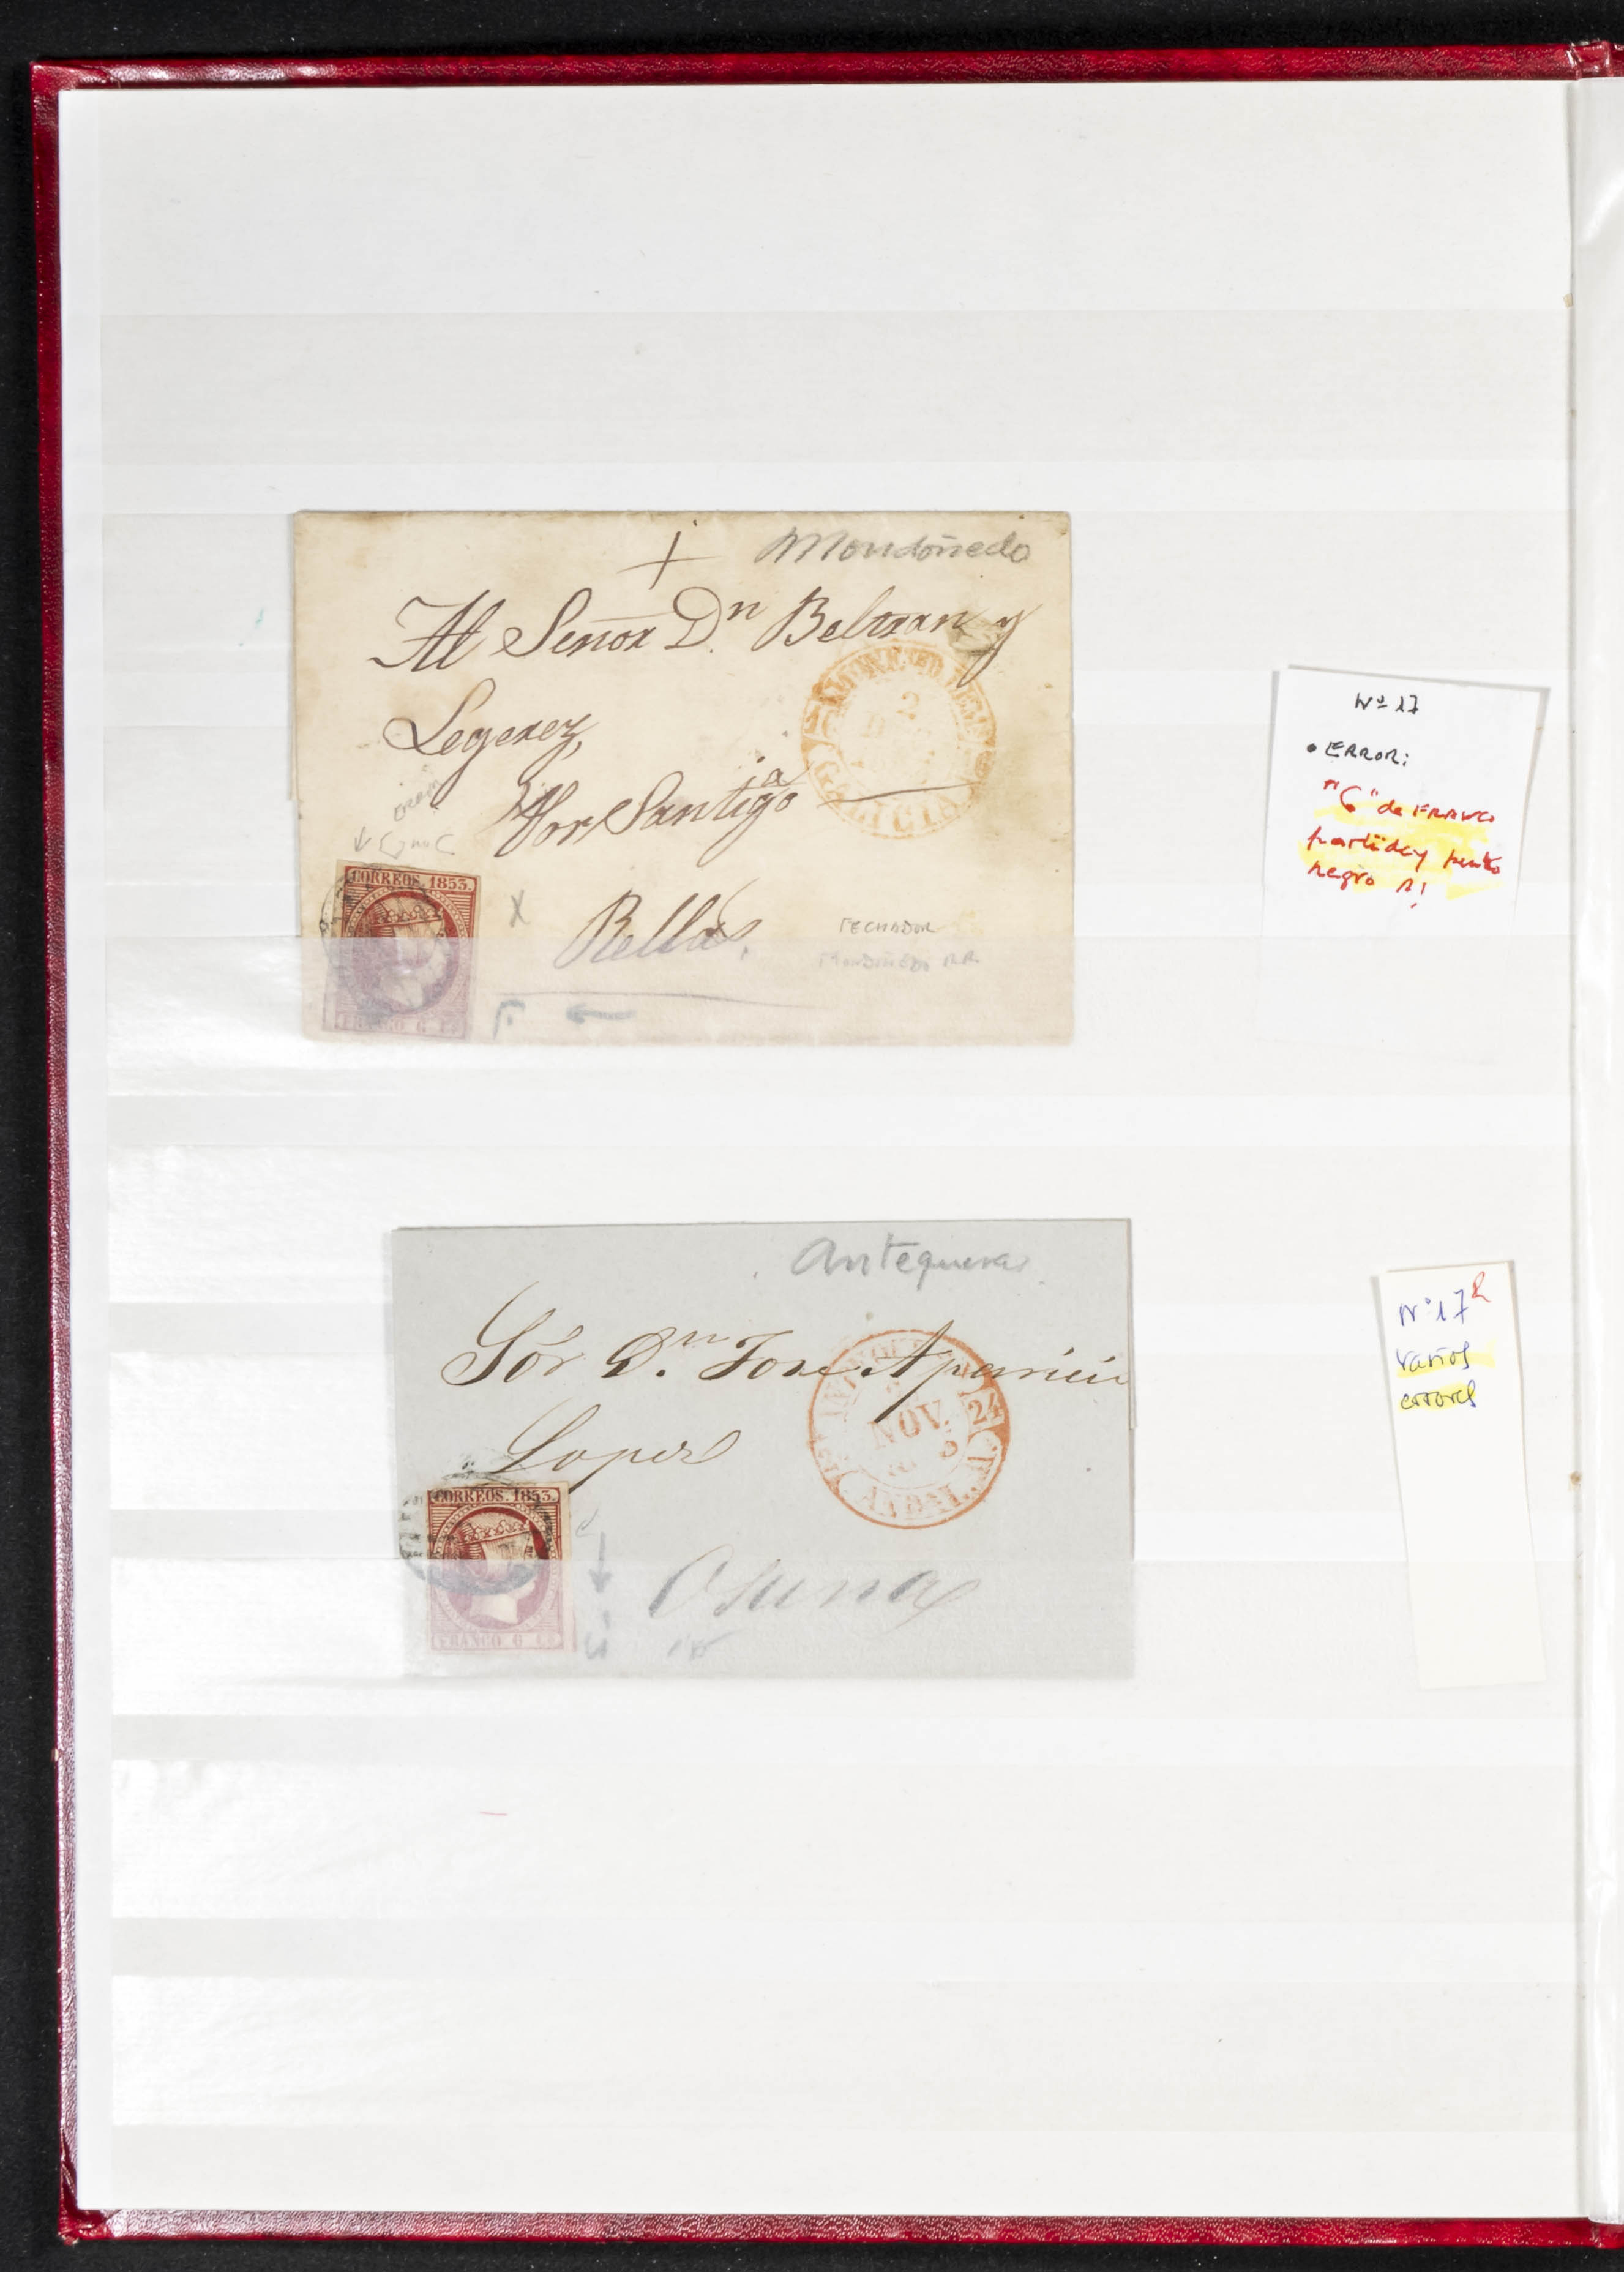 Mondoñedo
Al Señor Dn Beltran y
Legerez,
Por Santigo
a
Rellas,
CORREOS 1853.
FRANCO 6 Cs
2
GALICIA
FECHADOR
MONDOÑEDO R.R.
Nº 17
• ERROR:
"6" de FRANCO
partida y punto
negro R!
Antequera
Sór Dn Jose Aparicio
Lopez
NOV.
24
CORREOS. 1853.
FRANCO 6 Cs
Osuna
Nº 17
varios
errores